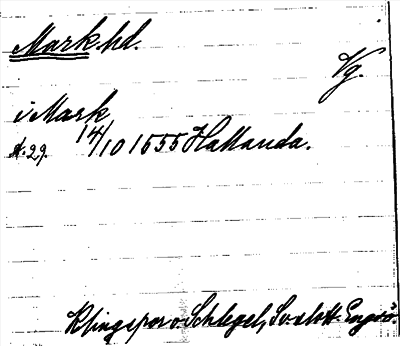 Mark hd.
Vg.
i Mark
14/10 1555 Hallanda.
d. 29.
Klingspor o. Schlegel, Sv. slott. Engsö.